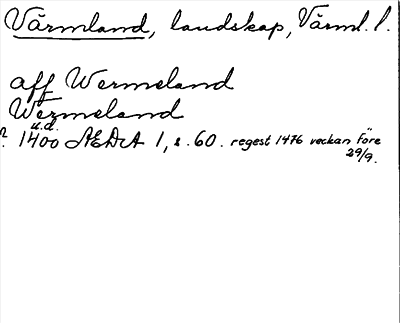 Värmland, landskap, Värml. l.
aff Wermeland
Wermeland
u.d.
? 1400 AEDA 1, s. 60. regest 1476 veckan före
29/9.